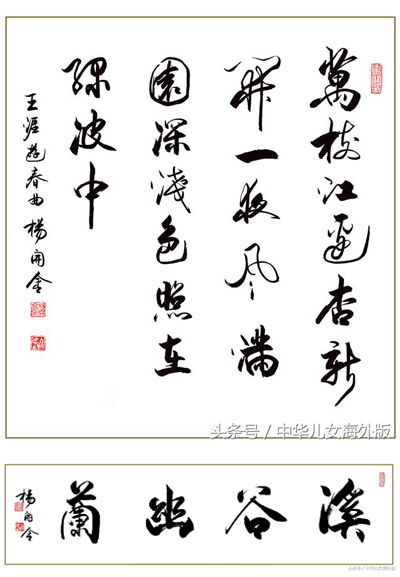 萬枝江邊杏新
開一夜風滿
園深淺色照在
綠波中
王涯遊春曲 楊開金
头条号 / 中华儿女海外版
溪谷幽蘭
楊開金
头条号 / 中华儿女海外版